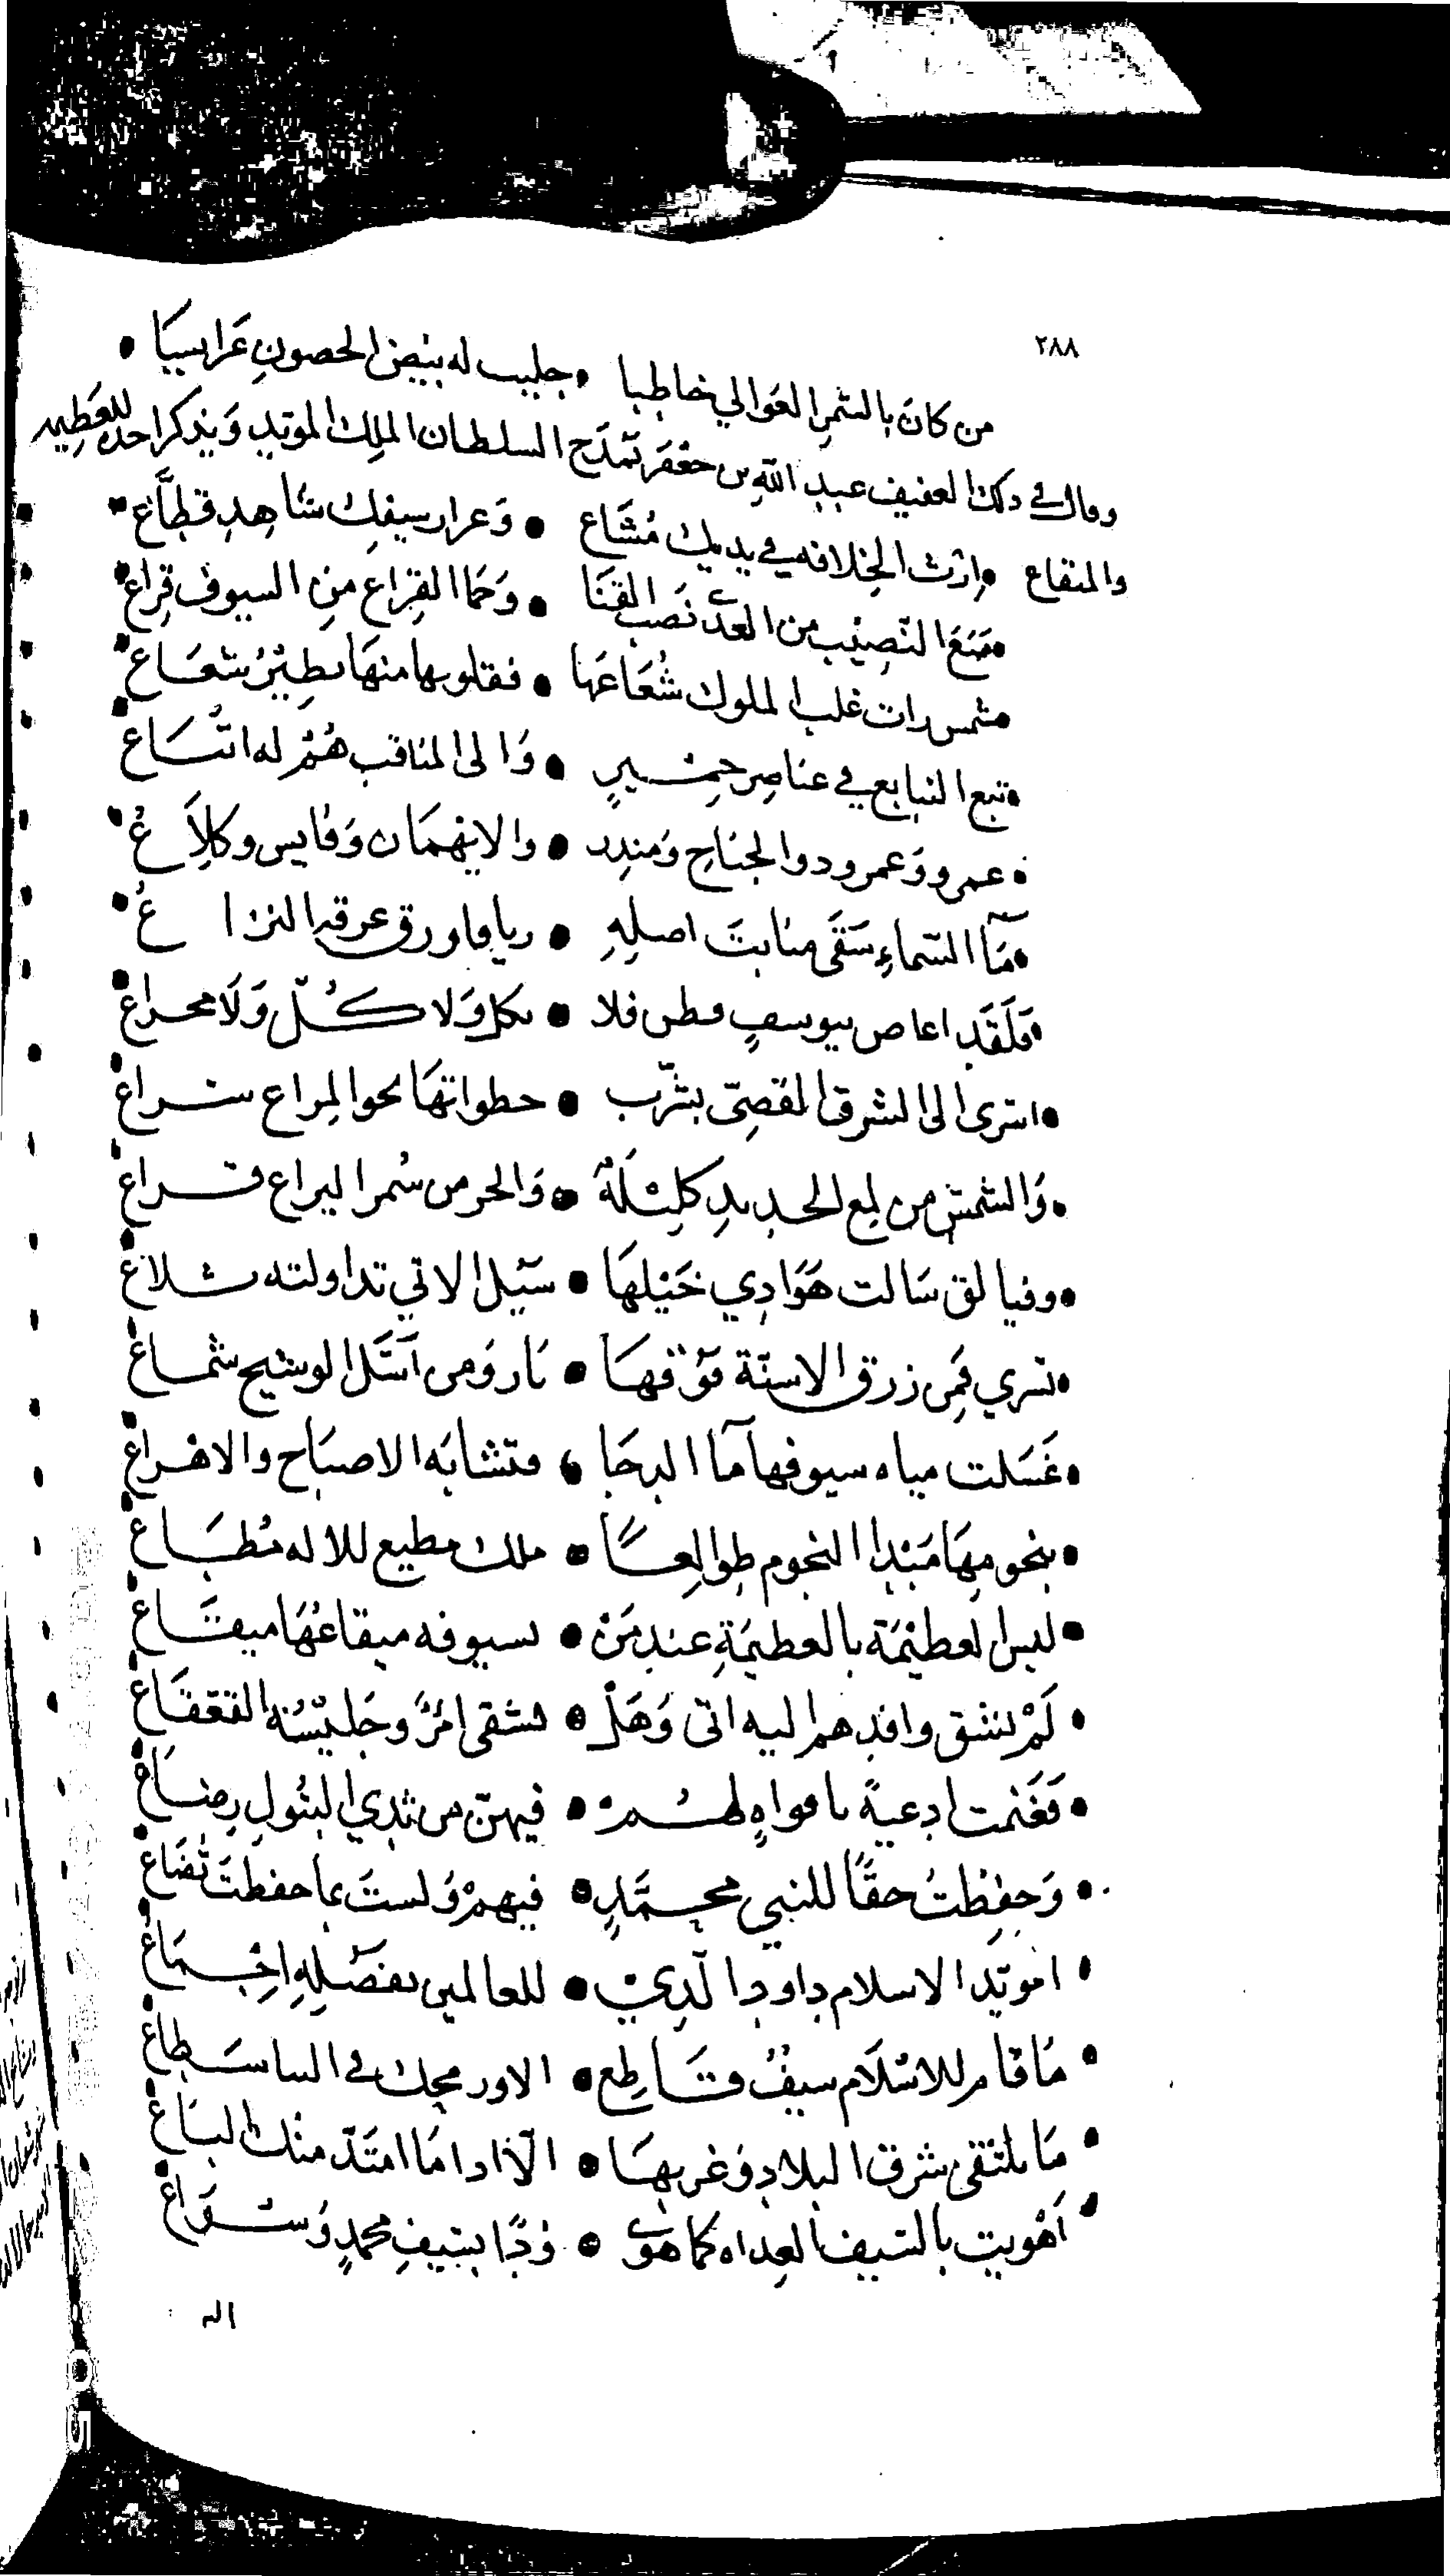 ٢٨٨
من كانَ بالسُمرِ العَوالي خاطبا • جلبت له بيض الحصونِ عَرايسَا •
وقال في ذلك العفيف عبد الله بن جعفر يَمدَح السلطان الملك المويد وَيذكر اخذه للعَظِيمه
والميقاع • اِرْث الخِلافه في يديك مُشَاع • وَغرار سيفك شاهد قطَّاع •
• مَنَعَ النّصِيْب من العِدَى نَصب القَنَا • وَحَمَا القِرَاع مِن السيوف قِراع •
• شمس رات غلب الملوك شُعَاعَها • فقلوبها منهَا يطِيْرُ شعَاع •
• تبع التبابع في عناصِر حِمْيرٍ • وَالى المناقب هُمْ له اتْبَاع •
• عمرو وَعمرو ذوا الجناحِ وَمنذر • والايْهمَان وَقابس وكلاَعُ •
• مَآ السّماءِ سَقَى منابتَ اصلهِ • ريا فاورق عرقه النزاعُ •
• وَلَقَد اعاص بيوسفٍ فطن فلا • نكل وَلا كُلّ وَلَا مجراع •
• اسرى الى الشرق القصِيّ بشُرّب • خطواتهَا نحو المِراع سراع •
• وَالشمسُ من لمع الحديد كلِيْلَةٌ • وَالجو من سُمر اليراع قراع •
• وفيالق سَالت هَوَادِي خَيْلهَا • سَيْل الاتي تداولته تلاع •
• تسري فمِن زرق الاسنّة فَوْقهَا • نار وَمن اَسَل الوشيج شماع •
• غَسَلت مياه سيوفها مآ الدجَا • فتشابَه الاصبَاح والاهزاع •
• بنجومِهَا مَبْدا النجوم طوالِعاً • ملك مطيع للاله مُطَاع •
• ليس العظيْمَة بالعظيمَةِ عند مَنْ • لسيوفه ميقاعُهَا ميقَاع •
• لَمْ يشق وافدهم اليه اتى وَهَلْ • يشقى امْرُءٌ وجَليْسُهُ القعقَاع •
• فَغَنمت ادعيةً بافواهٍ لهُمْ • فيهنّ من ثدي البتُولِ رِضَاع •
• وَحفِظتُ حقاً للنبي محمَّدٍ • فيهمْ وَلستَ بما حفظتَ تُضَاع •
• امويّد الاسلام داود الّذِيْ • للعالمين بفضلِهِ اِجْمَاع •
• مَا قام للاسْلَام سيفٌ قَاطِع • الا ورمحك في
• مَا يلتقى شرق البلادِ وَغربهَا • الّا اذا مَا امتَدّ منك البَاع •
• اَهْوَيت بالسّيف العداه كما هوَى • وُدًّا بسَيفِ محمدٍ وَسُوَاع •